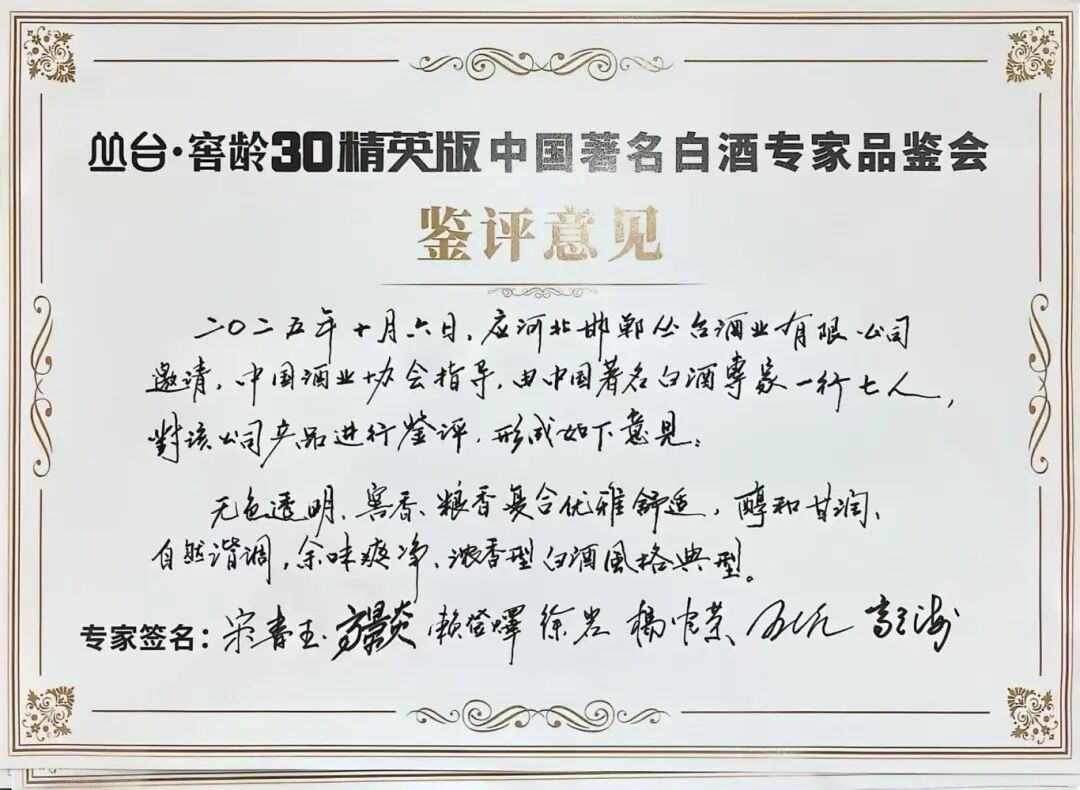 丛台·窖龄30精英版中国著名白酒专家品鉴会
鉴评意见
二〇二五年十月六日,应河北邯郸丛台酒业有限公司
邀请,中国酒业协会指导,由中国著名白酒專家一行七人,
對该公司产品进行鉴评,形成如下意见:
无色透明、窖香、粮香复合优雅舒适,醇和甘润、
自然谐调,余味爽净、浓香型白酒风格典型。
专家签名:宋书玉 赖登燡 徐岩 杨官荣